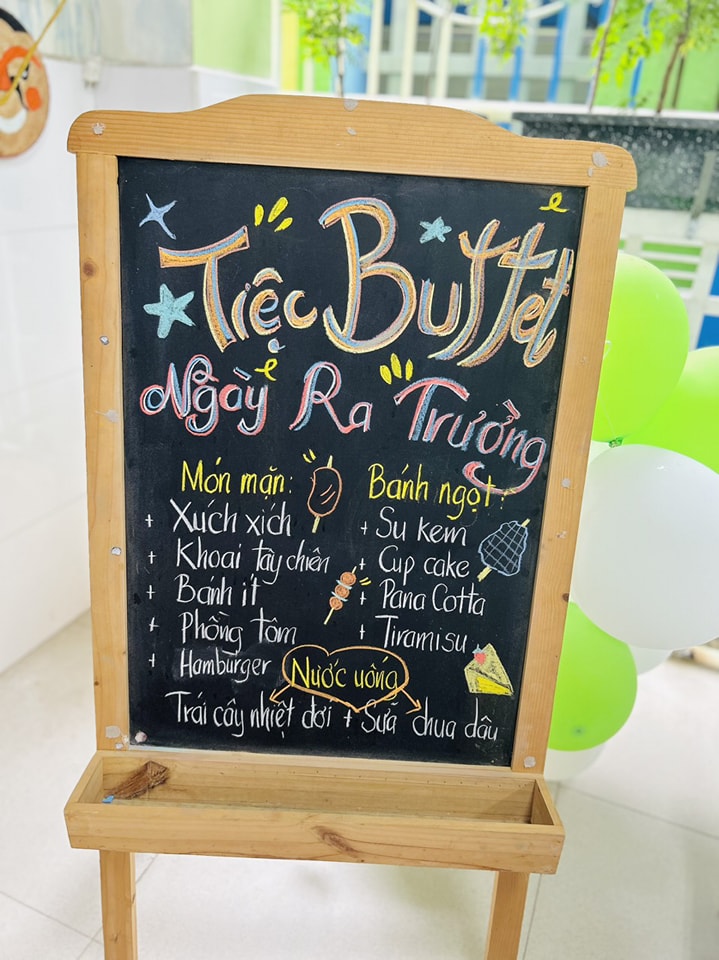 Tiệc Buffet
Ngày Ra Trường
Món mặn:
+ Xuch xich
+ Khoai tây chiên
+ Banh it
+ Phồng tôm
+ Hamburger
Bánh ngọt:
+ Su kem
+ Cup cake
+ Pana Cotta
+ Tiramisu
Nước uống
Trái cây nhiệt đới + Sữa chua dâu